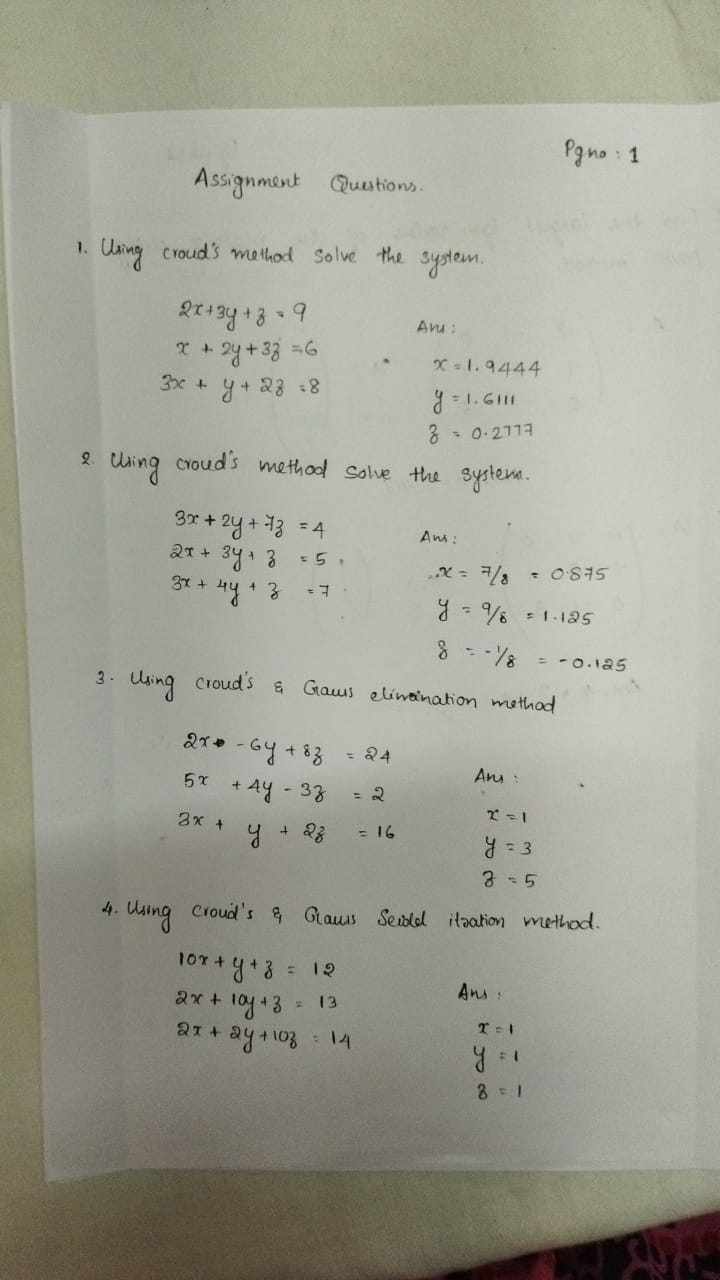 Pg no : 1
Assignment Questions.
1. Using croud's method solve the system.
2x+3y+z = 9
x + 2y+3z =6
3x + y + 2z =8
Ans :
x = 1.9444
y = 1.6111
z = 0.2777
2. Using croud's method solve the system.
3x + 2y + 7z = 4
2x + 3y + z = 5
3x + 4y + z = 7
Ans :
x = 7/8 = 0.875
y = 9/8 = 1.125
z = -1/8 = -0.125
3. Using croud's & Gauss elimination method
2x - 6y + 8z = 24
5x + 4y - 3z = 2
3x + y + 2z = 16
Ans :
x = 1
y = 3
z = 5
4. Using croud's & Gauss Seidel itration method.
10x + y + z = 12
2x + 10y + z = 13
2x + 2y + 10z = 14
Ans :
x = 1
y = 1
z = 1